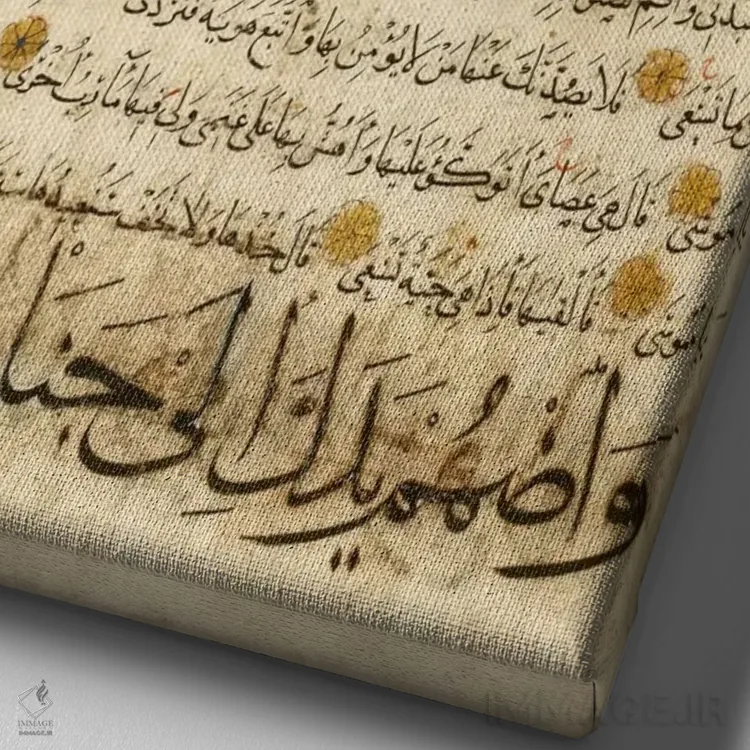 تسعى فلا يصدنك عنها من لا يؤمن بها واتبع هويه فتردى
موسى قال هي عصاى أتوكؤ عليها وأهش بها على غنمى ولى فيها مآرب أخرى
يا موسى فألقيها فإذا هى حية تسعى قال خذها ولا تخف سنعيدها
واضمم يدك إلى جنا
IMMAGE
IMMAGE.IR
IMMAGE.IR